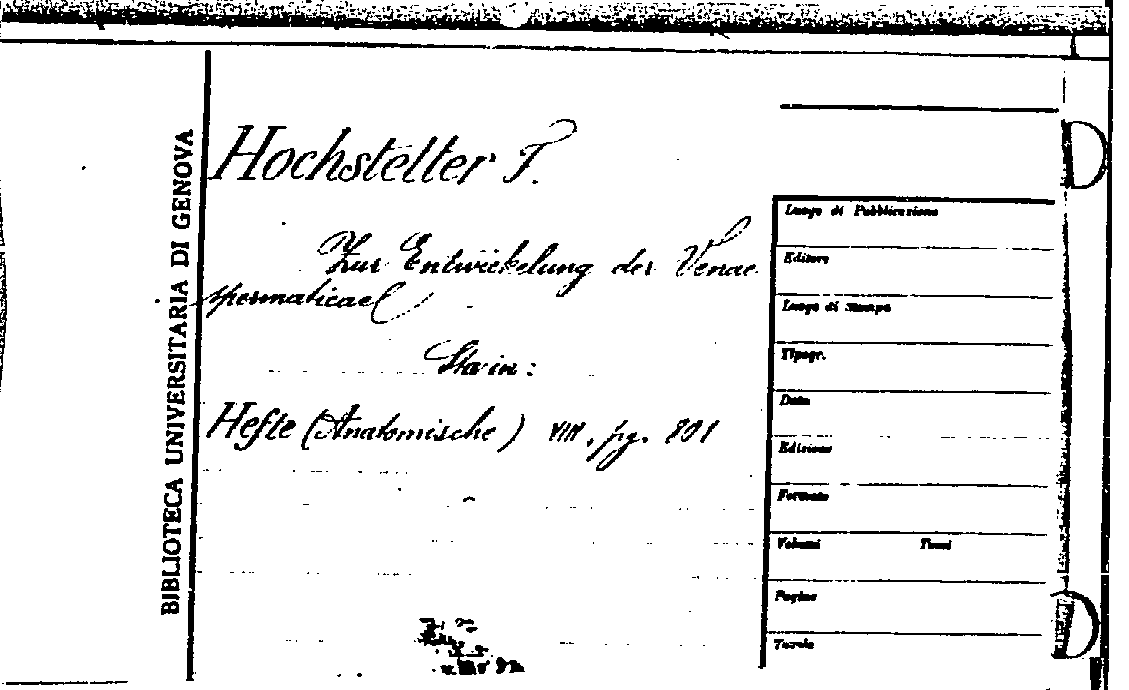 BIBLIOTECA UNIVERSITARIA DI GENOVA
Hochstetter F.
Zur Entwickelung der Venae
spermaticae
Sta in:
Hefte (Anatomische) VIII, pg. 801
Luogo di Pubblicazione
Editore
Luogo di stampa
Tipogr.
Data
Edizione
Formato
Volumi Tomi
Pagine
Tavole